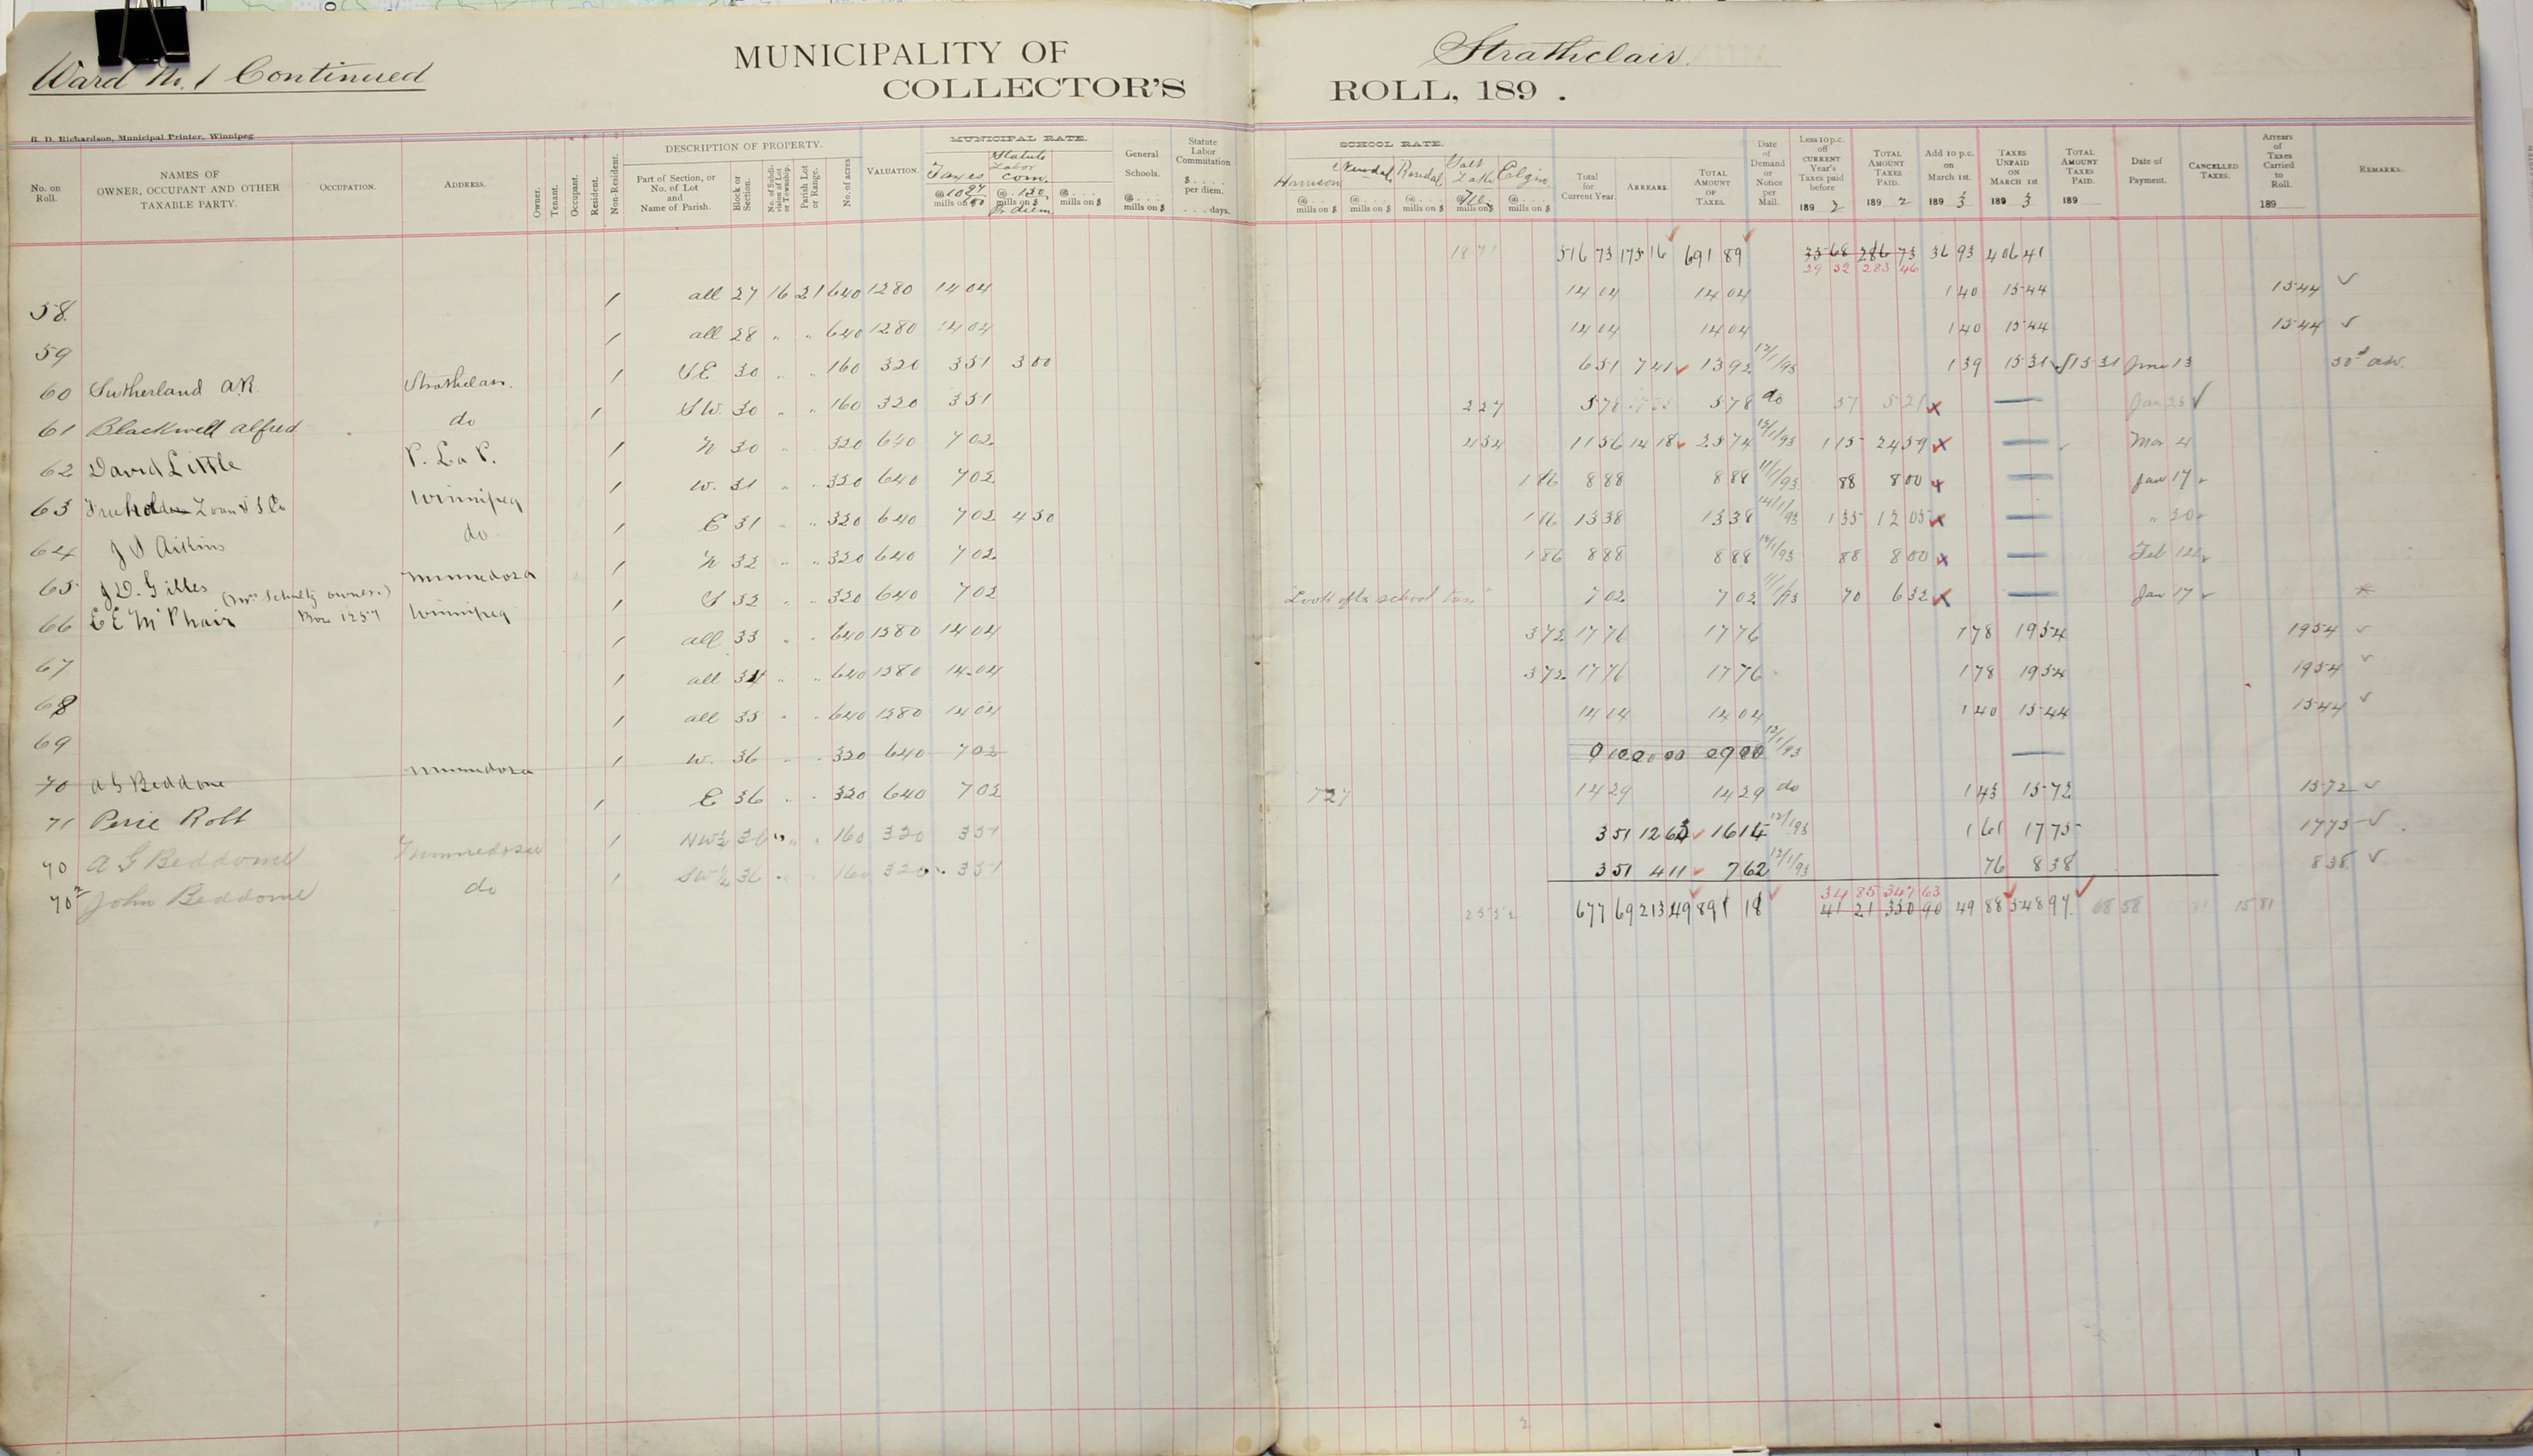 Ward No. 1 Continued
MUNICIPALITY OF Strathclair.
COLLECTOR'S ROLL, 189 .
R. D. Richardson, Municipal Printer, Winnipeg
No. on Roll. NAMES OF OWNER, OCCUPANT AND OTHER TAXABLE PARTY. OCCUPATION. ADDRESS. Owner. Tenant. Occupant. Resident. Non-Resident. DESCRIPTION OF PROPERTY. Part of Section, or No. of Lot and Name of Parish. Block or Section. No. of Subdivision of Lot or Township. Parish Lot or Range. No. of acres VALUATION. MUNICIPAL RATE. Taxes @ mills on $ Statute Labor Com. @ 150 mills on $ Pr diem @ .... mills on $ General Schools. @ .... mills on $ Statute Labor Commutation $ .... per diem. .... days.
SCHOOL RATE. Harrison @ ... mills on $ Newdale @ ... mills on $ @ ... mills on $ Salt Lake mills on $ Elgin @ ... mills on $ Total for Current Year. ARREARS. TOTAL AMOUNT OF TAXES. Date of Demand or Notice per Mail. Less 10 p.c. off CURRENT Year's Taxes paid before 189 2 TOTAL AMOUNT TAXES PAID. 189 2 Add 10 p.c. on March 1st. 189 3 TAXES UNPAID ON MARCH 1ST 189 3 TOTAL AMOUNT TAXES PAID. 189 Date of Payment. CANCELLED TAXES. Arrears of Taxes Carried to Roll. 189 REMARKS.
516 73 175 16 691 89 35 68 286 73 36 93 406 41
29 32 283 46
58 1 all 27 16 21 640 1280 14 04 14 04 14 04 1 40 15 44 15 44 ✓
59 1 all 28 " " 640 1280 14 04 14 04 14 04 1 40 15 44 15 44 ✓
60 Sutherland A.R. Strathclair. 1 SE 30 " " 160 320 3 51 3 00 6 51 7 41 ✓ 13 92 12/1/93 1 39 15 31 ✓ 15 31 June 13
61 Blackwell Alfred do 1 SW. 30 " " 160 320 3 51 2 27 5 78 5 78 do 57 5 21 x — Jan 25 ✓
62 David Little P. La P. 1 N 30 " " 320 640 7 02 4 54 11 56 14 18 ✓ 25 74 12/1/93 1 15 24 59 x — Mar 4
63 Loan & S Co Winnipeg 1 W. 31 " " 320 640 7 02 1 86 8 88 8 88 11/1/93 88 8 00 x — Jan 17
64 J S Aikins do 1 E 31 " " 320 640 7 02 4 50 1 86 13 38 13 38 14/1/93 1 35 12 05 x — " 20
65 J D. Gilles Minnedosa 1 N 32 " " 320 640 7 02 1 86 8 88 8 88 88 8 00 x — Feb 122
(Mrs Schultz owner)
66 E E McPhair Box 1257 Winnipeg 1 S 32 " " 320 640 7 02 "Look after school tax" 7 02 7 02 11/1/93 70 6 32 x — Jan 17
67 1 all 33 " " 640 1280 14 04 3 72 17 76 17 76 1 78 19 54 19 54 ✓
68 1 all 34 " " 640 1280 14 04 3 72 17 76 17 76 1 78 19 54 19 54 ✓
69 1 all 35 " " 640 1280 14 04 14 04 14 04 1 40 15 44 15 44 ✓
70 A G Beddome Minnedosa 1 W. 36 " " 320 640 7 02 12/1/93 —
71 Rolt 1 E 36 " " 320 640 7 02 7 27 14 29 14 29 do 1 43 15 72 15 72 ✓
70 A G Beddome Minnedosa 1 NW¼ 36 " " 160 320 3 51 3 51 12 63 ✓ 16 14 12/1/93 1 61 17 75 17 75 ✓
70² John Beddome do 1 SW¼ 36 " " 160 320 3 51 3 51 4 11 ✓ 7 62 12/1/93 76 8 38 8 38 ✓
34 85 347 63
677 69 213 49 891 18 41 21 350 90 49 88 548 97 68 58 15 81